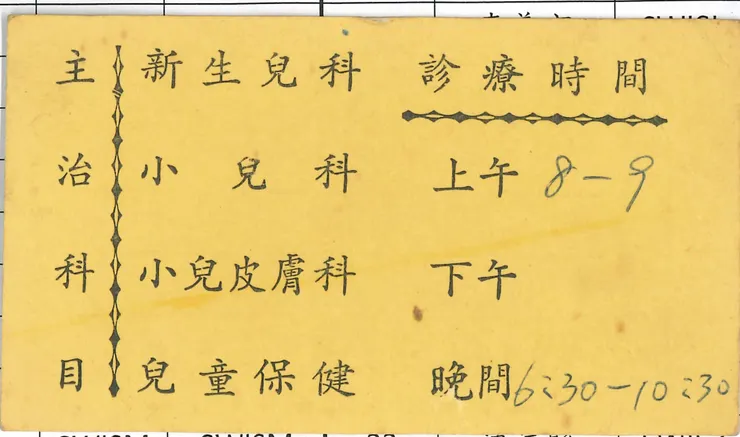 主治科目
新生兒科
小兒科
小兒皮膚科
兒童保健
診療時間
上午 8-9
下午
晚間 6:30-10:30